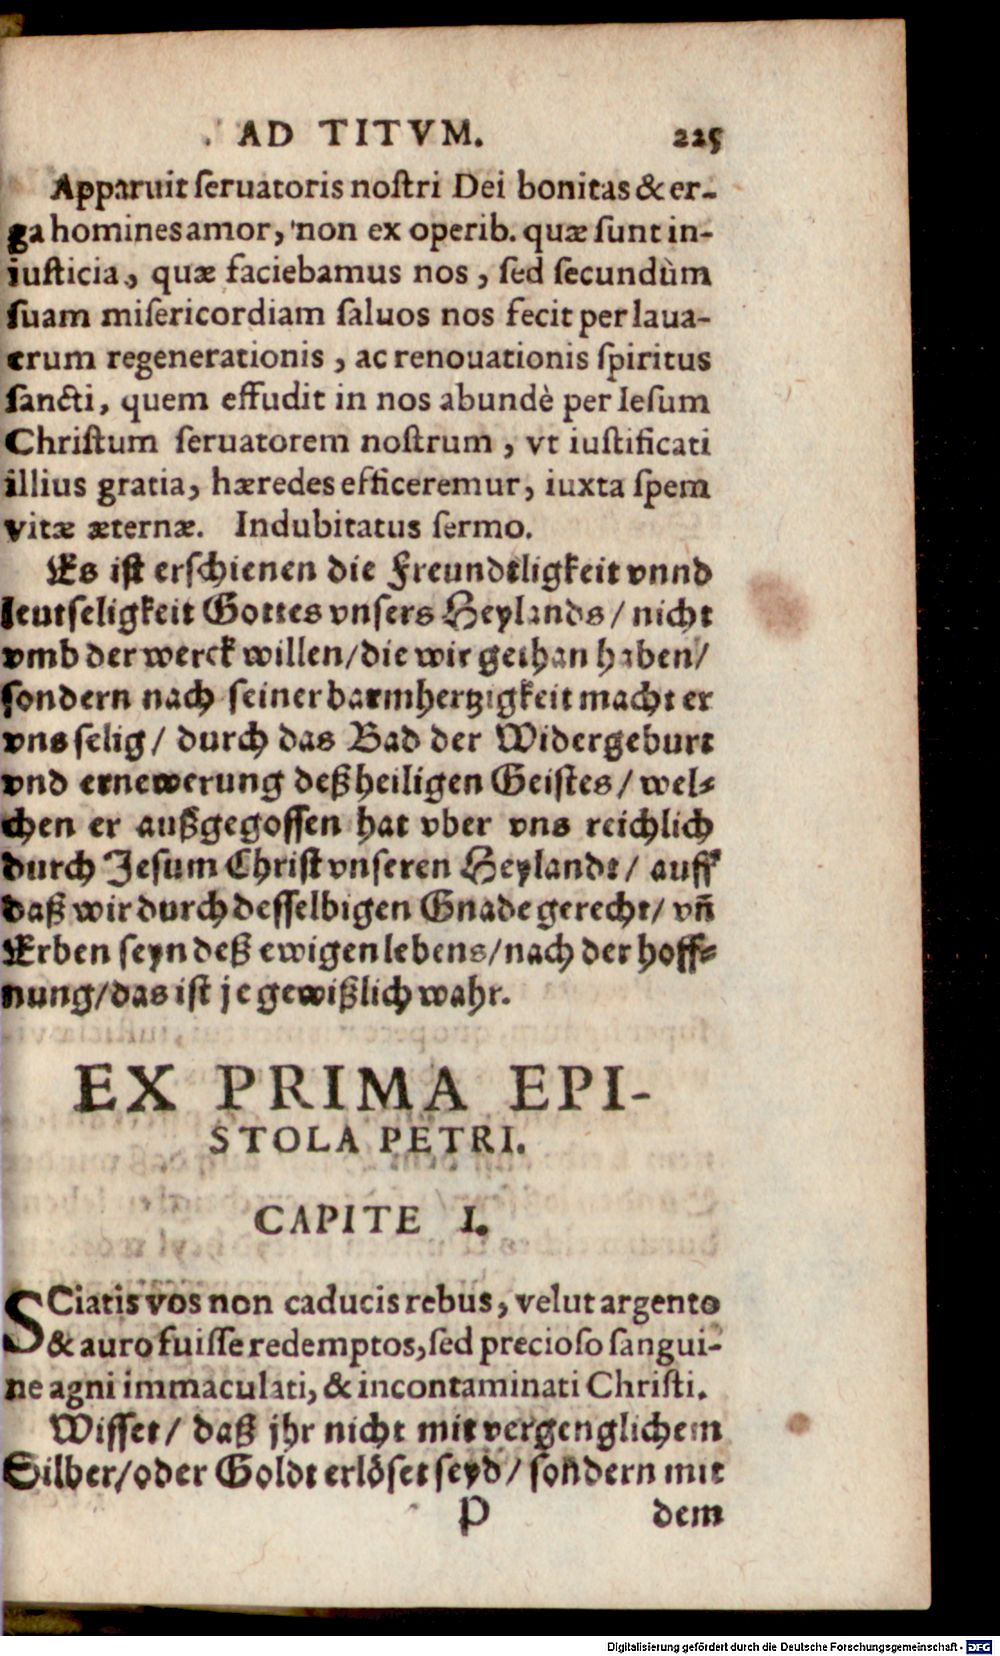 AD TITVM. 225
Apparuit ſeruatoris noſtri Dei bonitas & er-
ga homines amor, non ex operib. quæ ſunt in-
iuſticia, quæ faciebamus nos, ſed ſecundùm
ſuam miſericordiam ſaluos nos fecit per laua-
crum regenerationis, ac renouationis ſpiritus
ſancti, quem effudit in nos abundè per Ieſum
Chriſtum ſeruatorem noſtrum, vt iuſtificati
illius gratia, hæredes efficeremur, iuxta ſpem
vitæ æternæ. Indubitatus ſermo.
Es iſt erſchienen die Freundtligkeit vnnd
leutſeligkeit Gottes vnſers Heylands/ nicht
vmb der werck willen/die wir gethan haben/
ſondern nach ſeiner barmhertzigkeit macht er
vns ſelig/ durch das Bad der Widergeburt
vnd ernewerung deß heiligen Geiſtes/ wel-
chen er außgegoſſen hat vber vns reichlich
durch Jeſum Chriſt vnſeren Heylandt/ auff
daß wir durch deſſelbigen Gnade gerecht/ vñ
Erben ſeyn deß ewigen lebens/nach der hoff-
nung/das iſt je gewißlich wahr.
EX PRIMA EPI-
STOLA PETRI.
CAPITE I.
SCiatis vos non caducis rebus, velut argento
& auro fuiſſe redemptos, ſed precioſo ſangui-
ne agni immaculati, & incontaminati Chriſti.
Wiſſet/ daß jhr nicht mit vergenglichem
Silber/oder Goldt erlöſet ſeyd/ ſondern mit
P dem
Digitalisierung gefördert durch die Deutsche Forschungsgemeinschaft - DFG